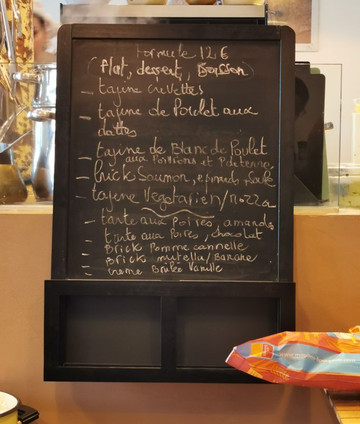 Formule 12,€
(Plat, dessert, Boisson)
- tajine crevettes
- tajine de Poulet aux
dattes
- tajine de Blanc de Poulet
aux Poitirons et P.de terre
- brick Saumon, epinards,
- tajine Vegetarien/mozza
- tarte aux Poires amande
- tarte aux Poires, chocolat
- Brick Pomme cannelle
- Brick nutella/Banane
- creme Brulée Vanille